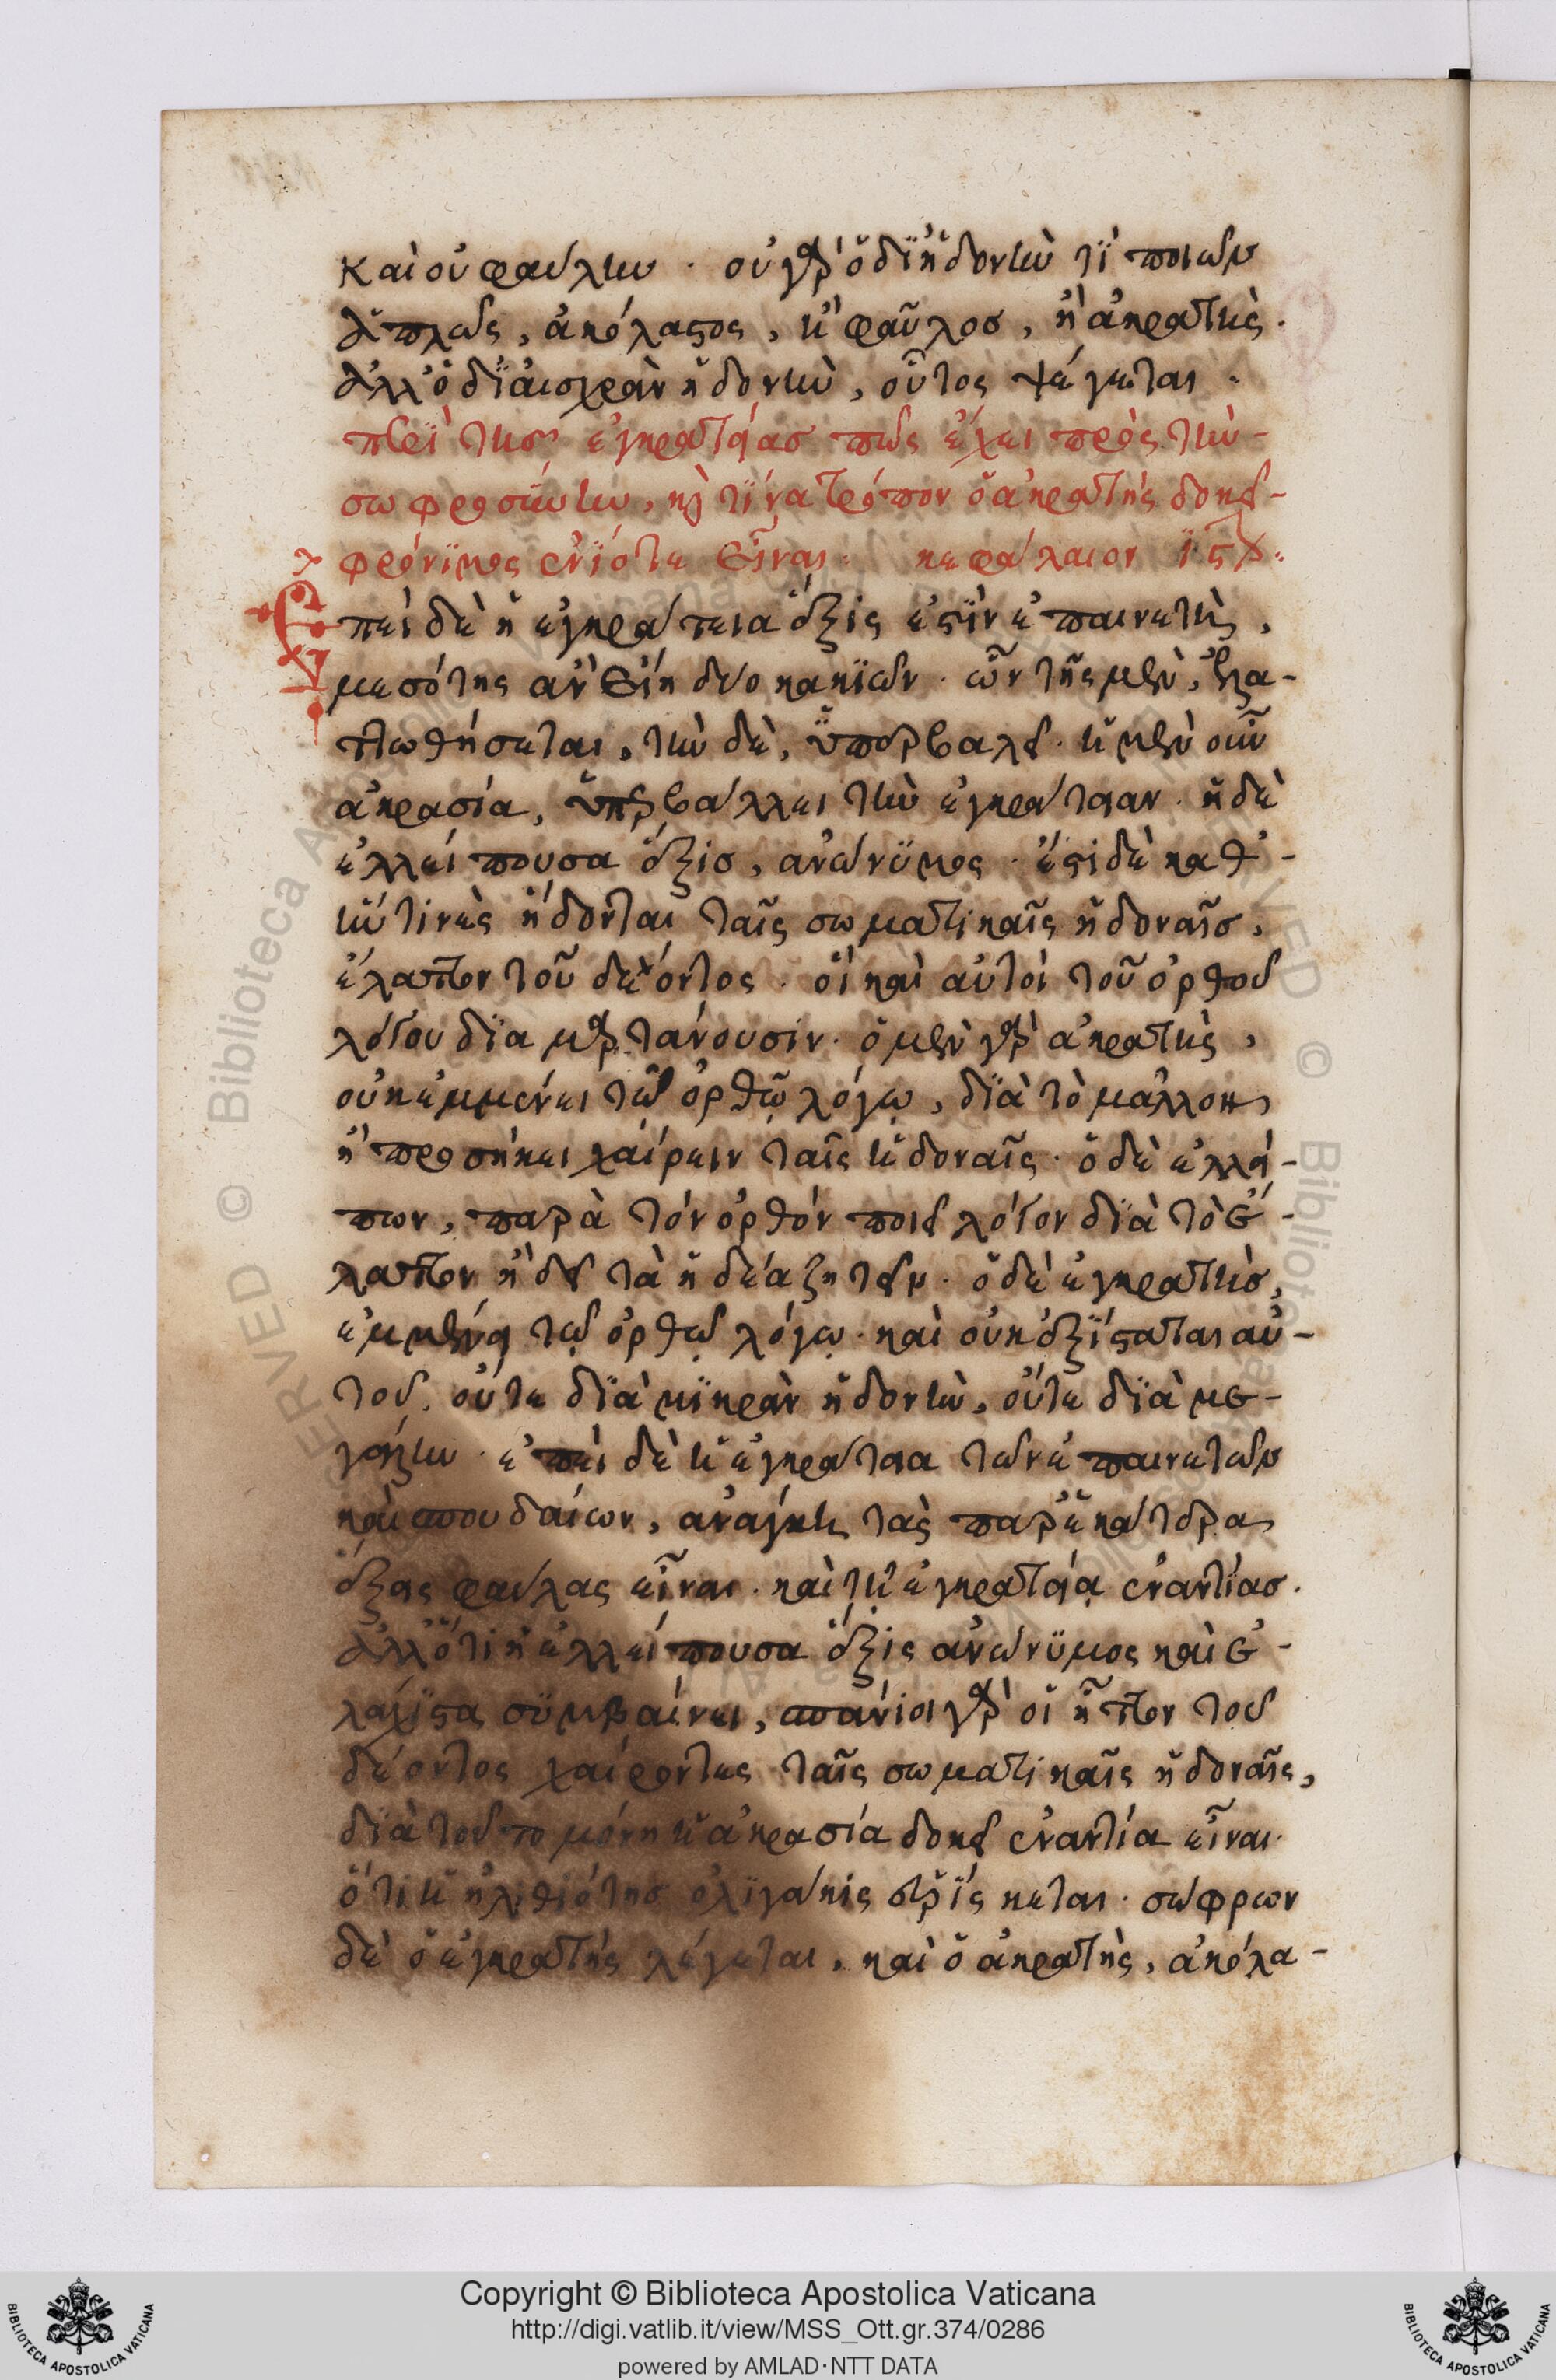 καὶ οὐ φαύλην · οὐ γὰρ ὁ δι ἡδονὴν τὶ ποιῶν
ἁπλῶς, ἀκόλαστος, ἢ φαῦλοσ, ἢ ἀκρατὴς.
ἀλλ ὁ δι αἰσχρὰν ἡδονὴν, οὗτος ψέγεται.
περὶ τῆσ ἐγκρατείασ πῶς ἔχει πρὸς τὴν-
σωφροσύνην, καὶ τίνα τρόπον ὁ ἀκρατής δοκεῖ-
φρόνιμος ἐνίοτε εἶναι. κεφάλαιον ιϛον.
Ἐπεὶ δὲ ἡ ἐγκράτεια ἕξις ἐστὶν ἐπαινετὴ,
μεσότης ἂν εἴη δύο κακιῶν. ὧν τῆς μὲν, ἐλα-
ττωθήσεται, τὴν δὲ, ὑπερβαλεῖ. ἡ μὲν οὖν
ἀκρασία, ὑπερβάλλει τὴν ἐγκράτειαν. ἡ δὲ
ἐλλείπουσα ἕξισ, ἀνώνυμος. ἔστι δὲ καθ-
ἥν τινὲς ἥδονται ταῖς σωματικαῖς ἡδοναῖσ,
ἔλαττον τοῦ δέοντος. οἳ καὶ αὐτοὶ τοῦ ὀρθοῦ
λόγου διαμαρτάνουσιν. ὁ μὲν γὰρ ἀκρατὴς,
οὐκ ἐμμένει τῶ ὀρθῷ λόγῳ, διὰ τὸ μᾶλλον
ἢ προσήκει χαίρειν ταῖς ἡδοναῖς. ὁ δὲ ἐλλεί-
πων, παρὰ τόν ὀρθόν ποιεῖ λόγον διὰ τὸ ἔ-
λαττον ἢ δεῖ τὰ ἡδέα ζητεῖν. ὁ δὲ ἐγκρατὴσ,
ἐμμένει τῷ ὀρθῷ λόγῳ. καὶ οὐκ ἐξίσταται αὐ-
τοῦ. οὔτε διὰ μικρὰν ἡδονὴν, οὔτε διὰ με-
γάλην. ἐπεὶ δὲ ἡ ἐγκράτεια τῶν ἐπαινετῶν
καὶ σπουδαίων, ἀνάγκη τὰς παρ ἑκάτερα
ἕξεις φαύλας εἶναι. καὶ τῇ ἐγκρατείᾳ ἐναντίασ.
ἀλλ ὅτι ἡ ἐλλείπουσα ἕξις ἀνώνυμος καὶ ἐ-
λάχιστα συμβαίνει, σπάνιοι γὰρ οἱ ἧττον τοῦ
δέοντος χαίροντες ταῖς σωματικαῖς ἡδοναῖς,
διὰ τοῦτο μόνη ἡ ἀκρασία δοκεῖ ἐναντία εἶναι.
ὅτι ἡ ἠλιθιότησ ὀλιγάκις εὑρίσκεται. σώφρων
δὲ ὁ ἐγκρατής λέγεται, καὶ ὁ ἀκρατὴς, ἀκόλα-
Copyright © Biblioteca Apostolica Vaticana
http://digi.vatlib.it/view/MSS_Ott.gr.374/0286
powered by AMLAD·NTT DATA